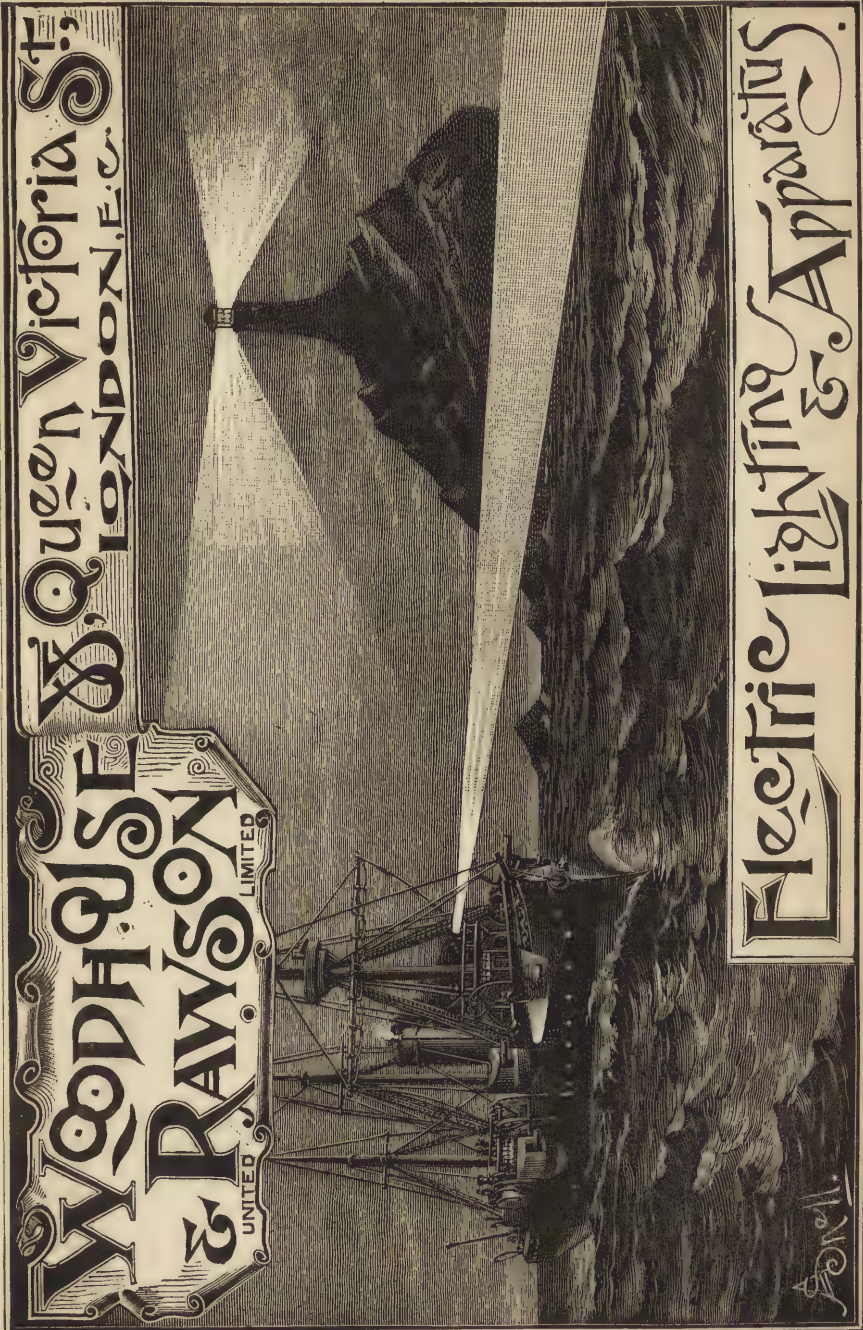 WOODHOUSE
& RAWSON
UNITED LIMITED
88, Queen Victoria St.,
LONDON, E.C.
Electric Lighting & Apparatus.